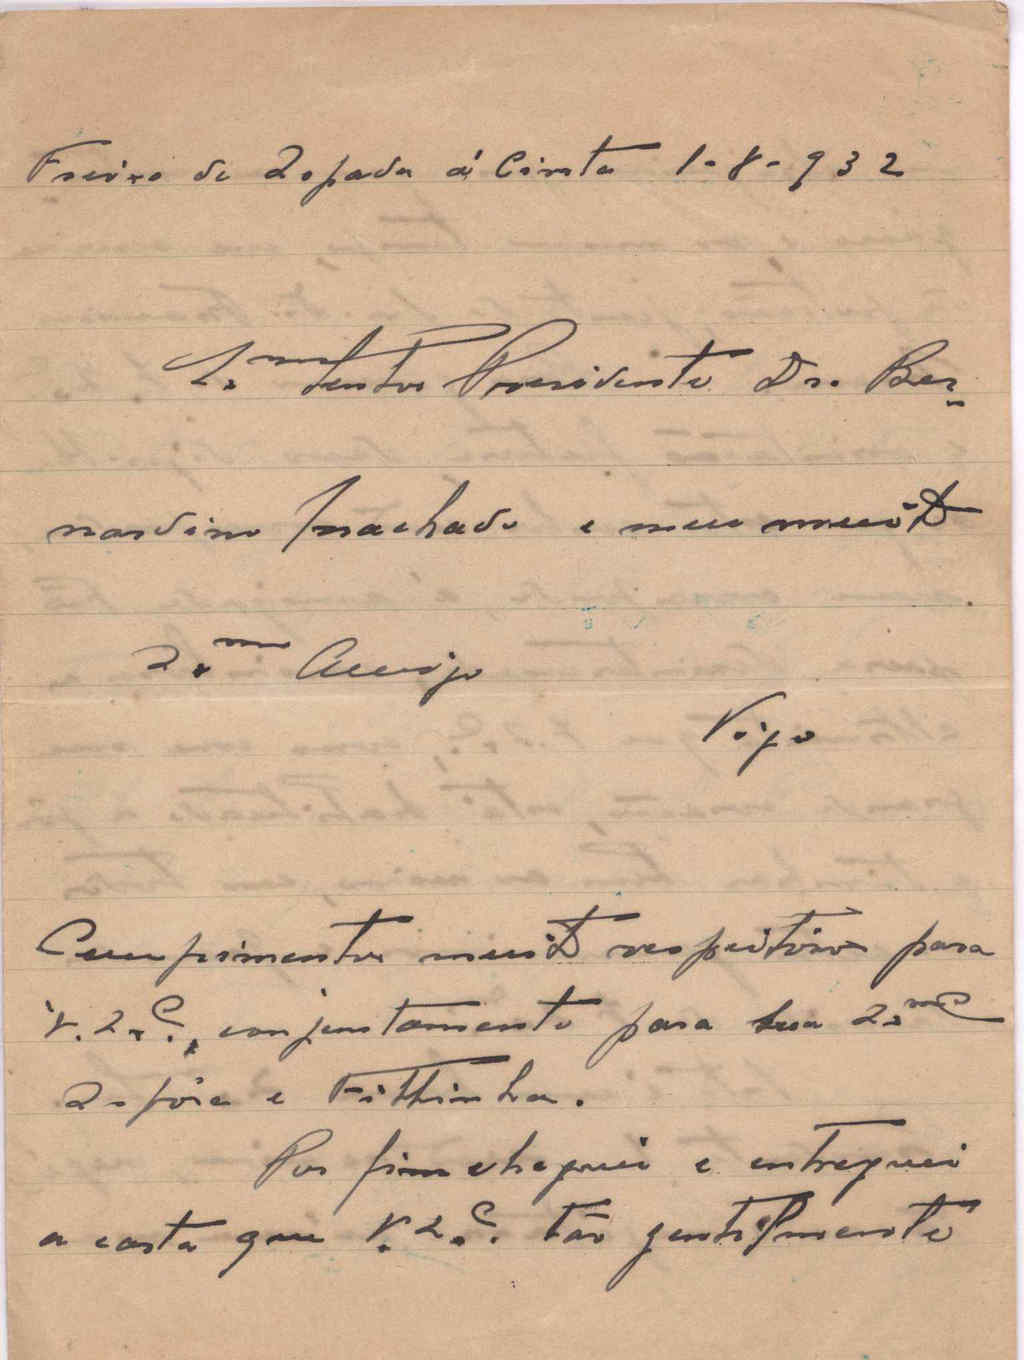 Freixo de Espada á Cinta 1-8-932
Ex.mo Senhor Presidente Dr. Ber-
nardino Machado e meu muito
Ex.mo Amigo
Vigo
Cumprimentos muito respeitosos para
V. Ex.ª, conjuntamente para sua Ex.ma
Espôsa e Filhinha.
Por fim cheguei e entreguei
a carta que V. Ex.ª tão gentilmente